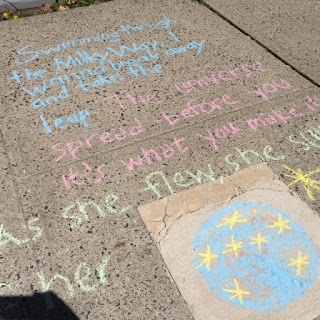 Swimming through
the Milky Way, I
wanna break away
and take the
leap The universe
spread before you
it's what you make it
As she flew, she
her